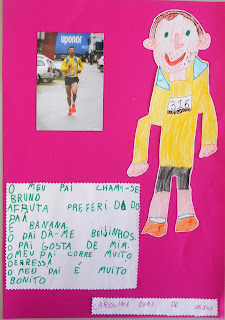 uponor
316
O MEU PAI CHAMA-SE
BRUNO
A FRUTA PREFERIDA DO
PAÁ
É BANANA.
O PAI DÁ-ME BEIJINHOS.
O PAI GOSTA DE MIM.
O MEU PAI CORRE MUITO
DEPRESSA
O MEU PAI É MUITO
BONITO
DIAS DE